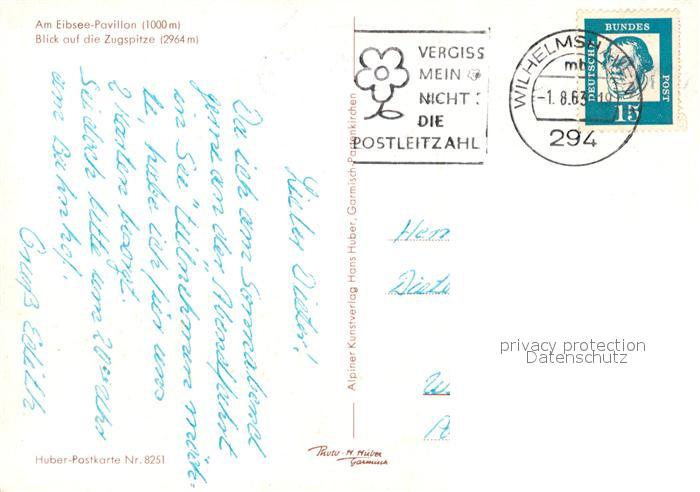 Am Eibsee-Pavillon (1000 m)
Blick auf die Zugspitze (2964 m)
VERGISS
MEIN
NICHT:
DIE
POSTLEITZAHL
WILHELMSHAVEN
mb
-1.8.63-19
294
DEUTSCHE
BUNDES
POST
15
Lieber Dieter!
Da ich am Sonnabend
gerne an der "Abendfahrt
in See" teilnehmen möch-
te, habe ich für uns
2 Karten besorgt.
Sei doch bitte um 20 Uhr
am Bahnhof.
Gruß Edith
Alpiner Kunstverlag Hans Huber, Garmisch-Partenkirchen
Herrn
Diete
W
privacy protection
Datenschutz
Huber-Postkarte Nr. 8251
Photo-H. Huber
Garmisch